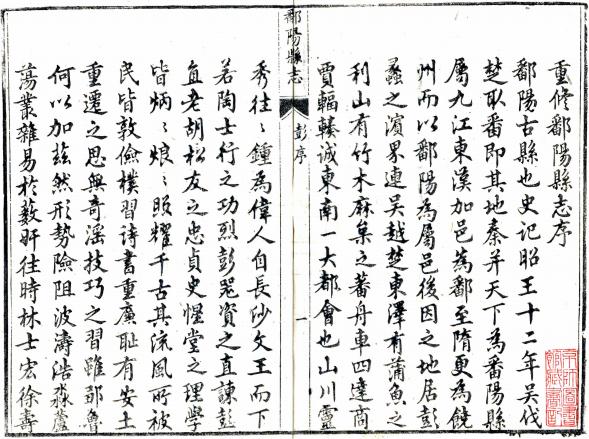 重修鄱陽縣志序
鄱陽古縣也史記昭王十二年吳伐
楚取番即其地秦并天下為番陽縣
屬九江東漢加邑為鄱至隋更為饒
州而以鄱陽為屬邑後因之地居彭
蠡之濱界連吳越楚東澤有蒲魚之
利山有竹木麻菓之蕃丹車四達商
賈輻輳誠東南一大都會也山川靈
鄱陽縣志
彭序
一
秀往〻鍾為偉人自長沙文王而下
若陶士行之功烈彭器資之直諫彭
直老胡松友之忠貞史惺堂之理學
皆炳〻烺〻照耀千古其流風所被
民皆敦儉樸習詩書重廉恥有安土
重遷之思無奇淫技巧之習雖鄒魯
何以加茲然形勢險阻波濤浩淼蘆
蕩叢雜易於藪奸往時林士宏徐壽